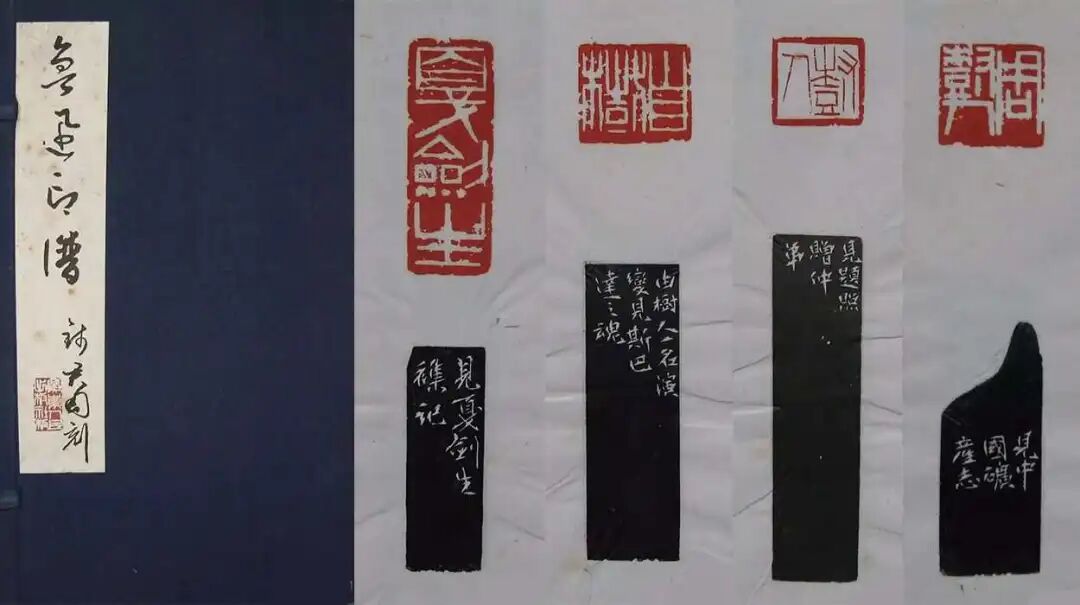 魯迅印譜
錢君匋刻
戛劍生
見戛劍生
襍記
自樹
由樹人一名演
變見斯巴
達之魂
樹人
見題照
贈仲
弟
周樹人
見中
國礦
產志